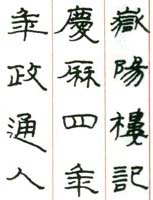 嶽陽樓記
慶厤四年
年政通人